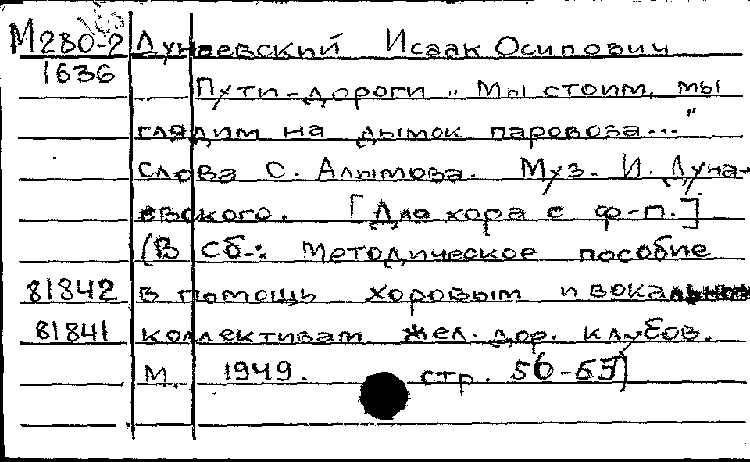 М280-2 Дунаевский Исаак Осипович
1636
Пути-дороги „Мы стоим, мы
глядим на дымок паровоза..."
Слова С. Алымова. Муз. И. Дуна-
евского. [Для хора с ф-п.]
(В сб.: Методическое пособие
81842 в помощь хоровым и вокальным
81841 коллективам жел. дор. клубов.
М. 1949. стр. 50-55)